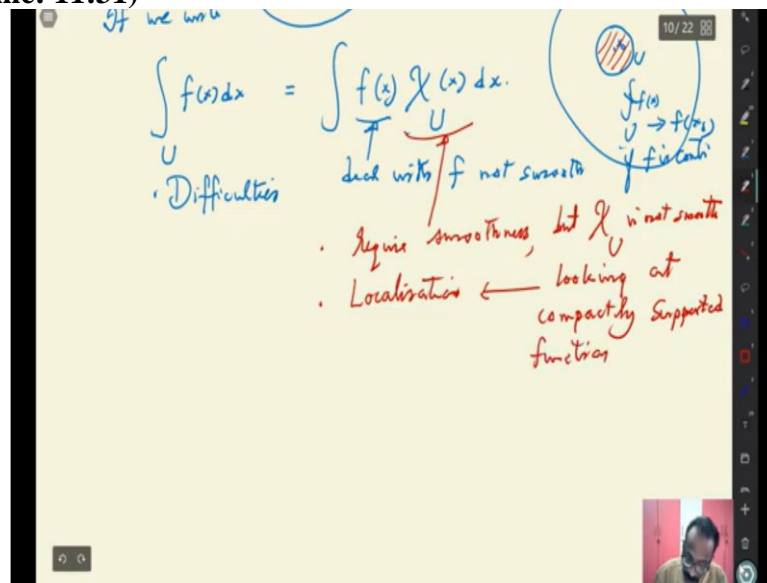 If we write
10/22
∫_U f(x)dx = ∫ f(x) χ_U(x) dx.
U
∫_U f(x) → f(x₀)
if f is conti
· Difficulties
deal with f not smooth
· Require smoothness, but χ_U is not smooth
· Localisation ← looking at
compactly supported
function